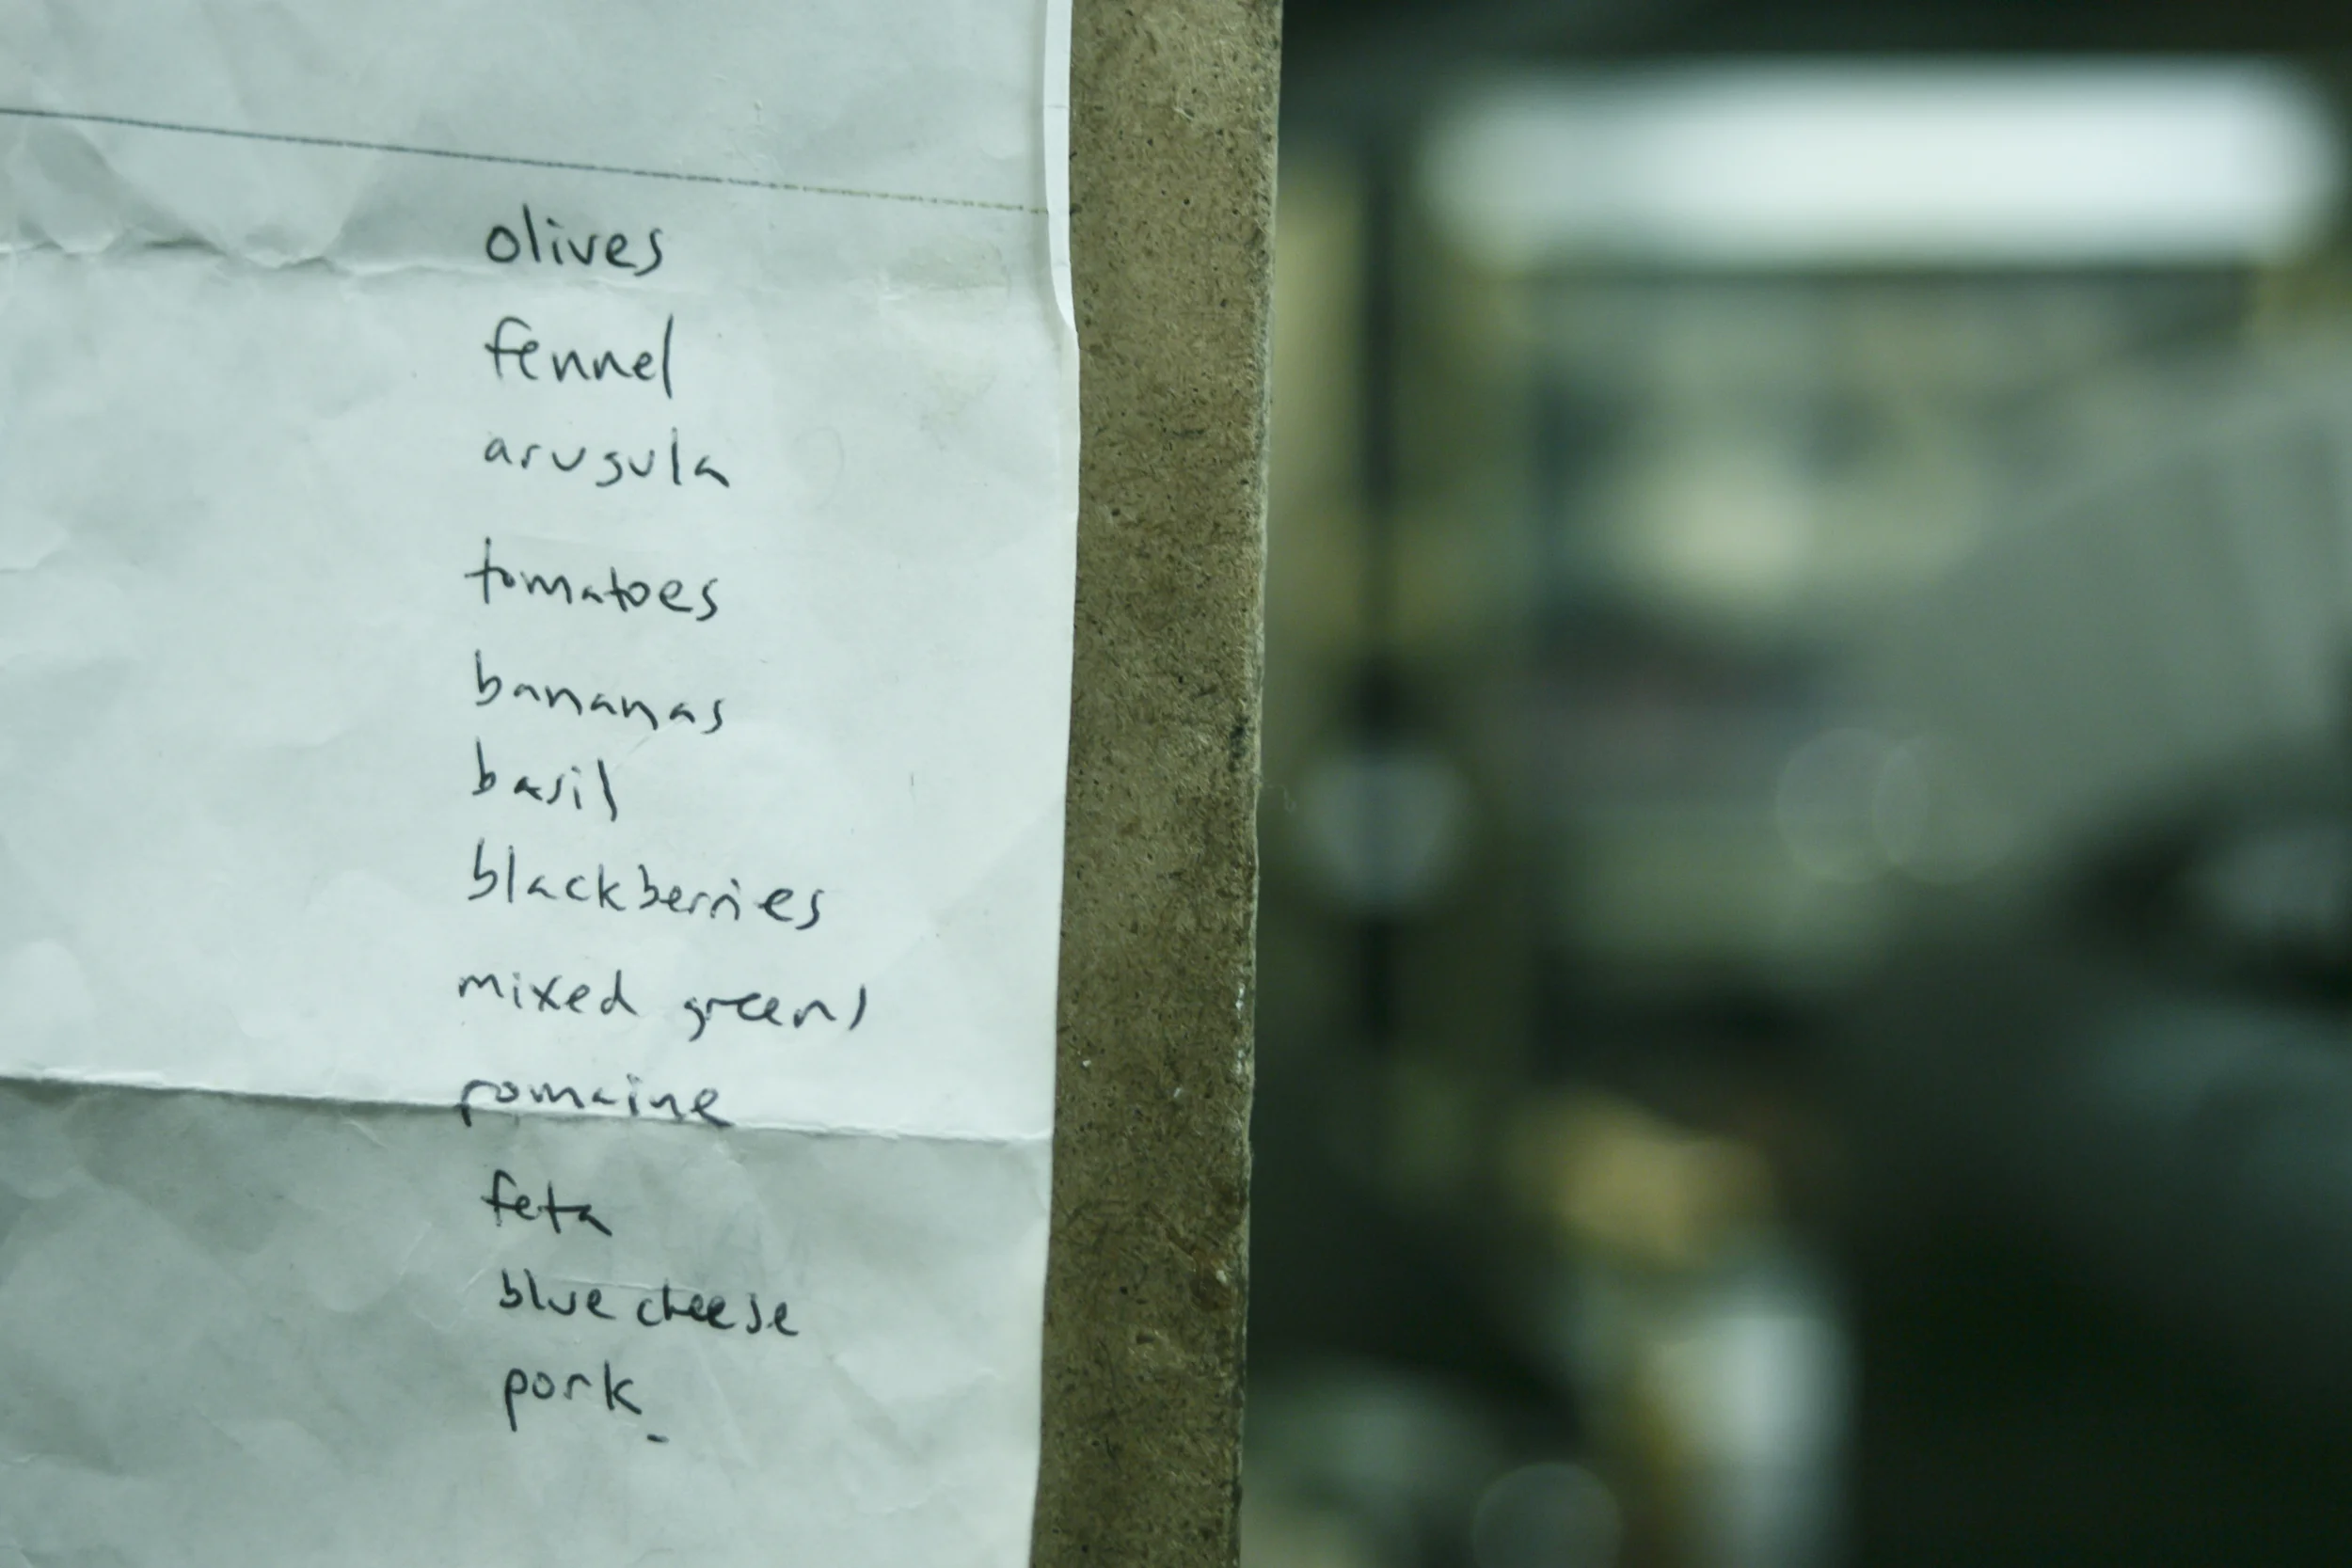 olives
fennel
arugula
tomatoes
bananas
basil
blackberries
mixed greens
romaine
feta
blue cheese
pork